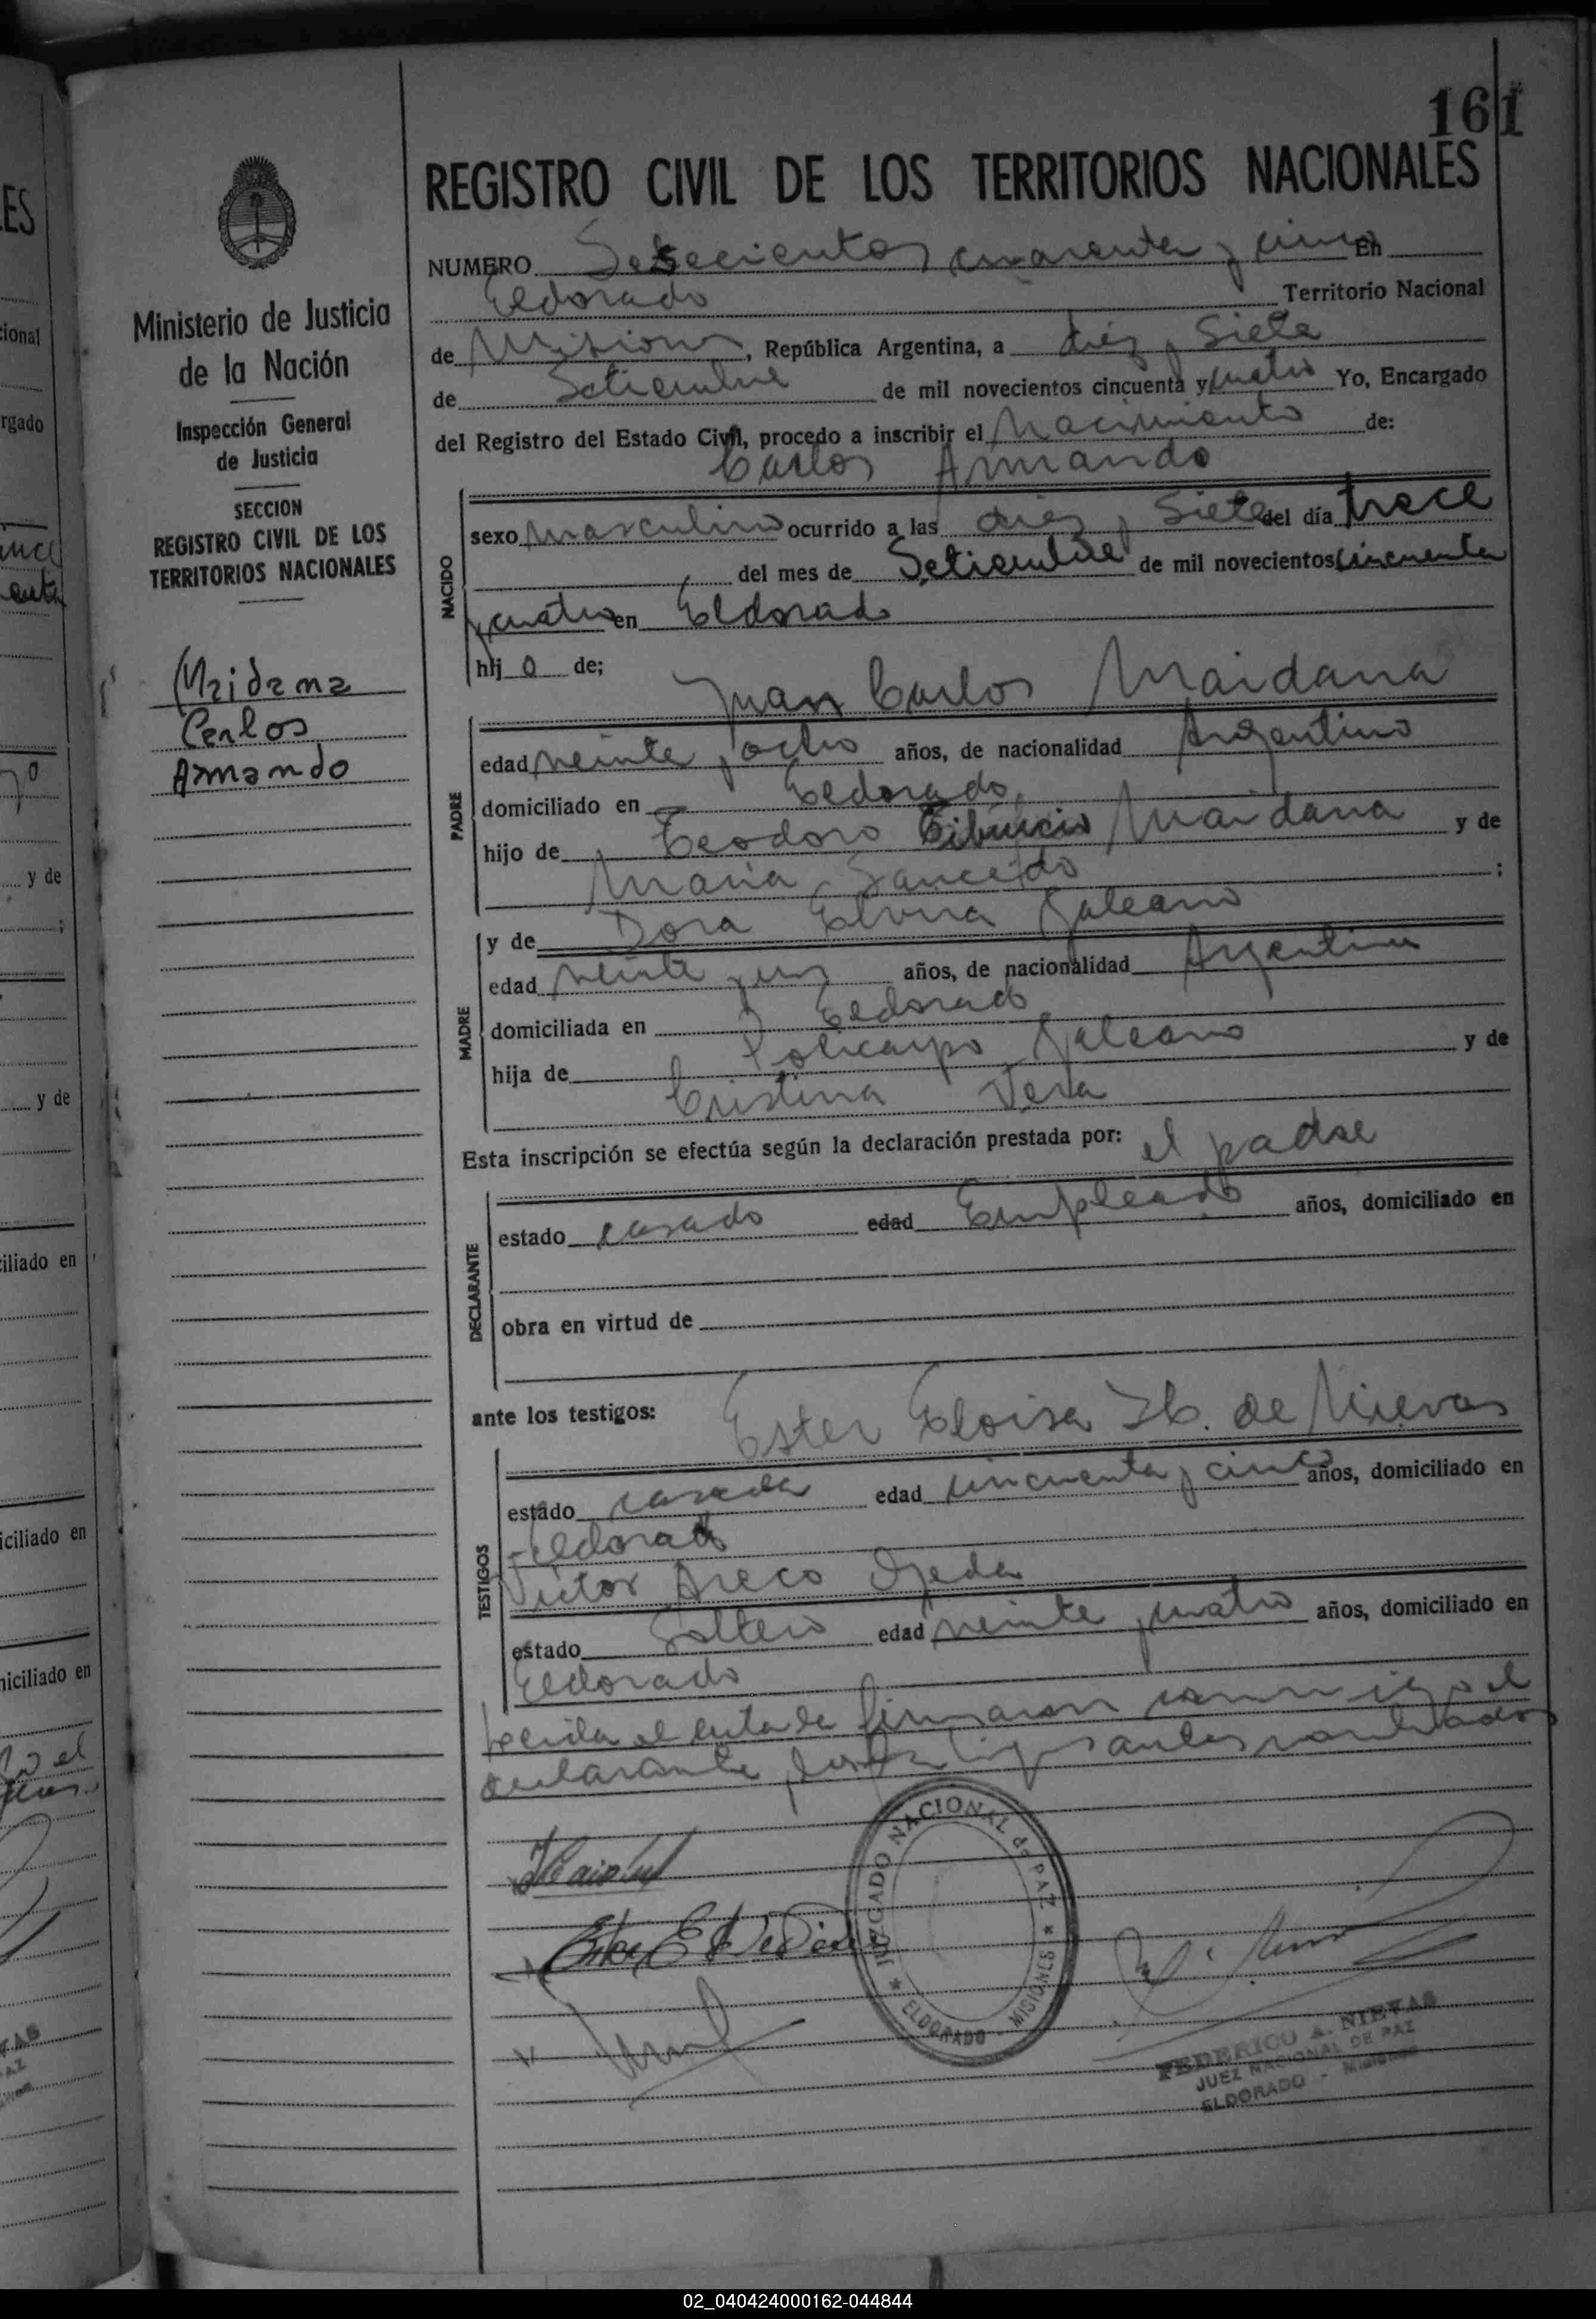 161
REGISTRO CIVIL DE LOS TERRITORIOS NACIONALES
NUMERO Setecientos cuarenta y cinco En
Eldorado Territorio Nacional
de Misiones, República Argentina, a diez y Siete
de Setiembre de mil novecientos cincuenta y cuatro Yo, Encargado
del Registro del Estado Civil, procedo a inscribir el Nacimiento de:
Carlos Armando
NACIDO
sexo masculino ocurrido a las diez y Siete del día trece
del mes de Setiembre de mil novecientos cincuenta
y cuatro en Eldorado
hij o de;
Juan Carlos Maidana
PADRE
edad veinte y ocho años, de nacionalidad Argentino
domiciliado en Eldorado
hijo de Teodoro Tiburcio Maidana y de
Maria Saucedo ;
y de Dora Elvira Galeano
MADRE
edad veinte y un años, de nacionalidad Argentina
domiciliada en Eldorado
hija de Policarpo Galeano y de
Cristina Vera
Esta inscripción se efectúa según la declaración prestada por: el padre
DECLARANTE
estado casado edad Empleado años, domiciliado en
obra en virtud de
ante los testigos:
Ester Eloisa H. de Nievas
TESTIGOS
estado casada edad cincuenta y cinco años, domiciliado en
Eldorado
Victor Areco Ojeda
estado Soltero edad veinte y cuatro años, domiciliado en
Eldorado
Leida el acta la firmaron conmigo el
declarante y los testigos antes nombrados
JUZGADO NACIONAL de PAZ
★ ELDORADO - MISIONES ★
FEDERICO A. NIEVAS
JUEZ NACIONAL DE PAZ
ELDORADO - Misiones
Ministerio de Justicia
de la Nación
Inspección General
de Justicia
SECCION
REGISTRO CIVIL DE LOS
TERRITORIOS NACIONALES
Maidana
Carlos
Armando
ES
cional
rgado
y de
;
y de
ciliado en
iciliado en
niciliado en
02_040424000162-044844